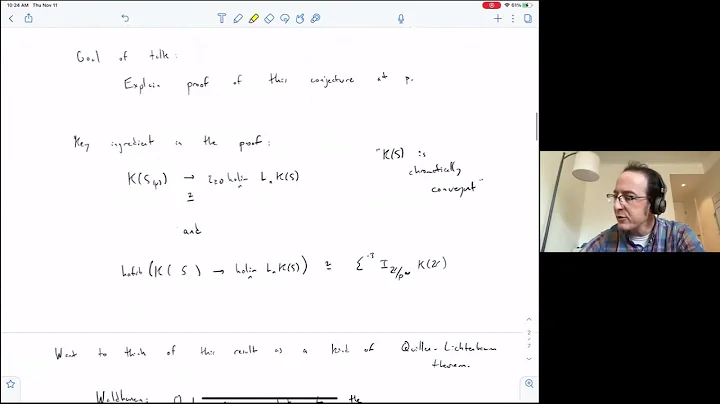 10:24 AM Thu Nov 11
61%
Goal of talk:
Explain proof of this conjecture at p.
Key ingredient in the proof:
"K(S) is
chromatically
convergent"
K(S_(p)) → τ≥0 holim L_n K(S)
≃
and
hofib(K(S) → holim L_n K(S)) ≃ Σ^-3 I_Z/p^∞ K(Z)
Want to think of this result as a kind of Quillen-Lichtenbaum
theorem.
Waldhausen: the